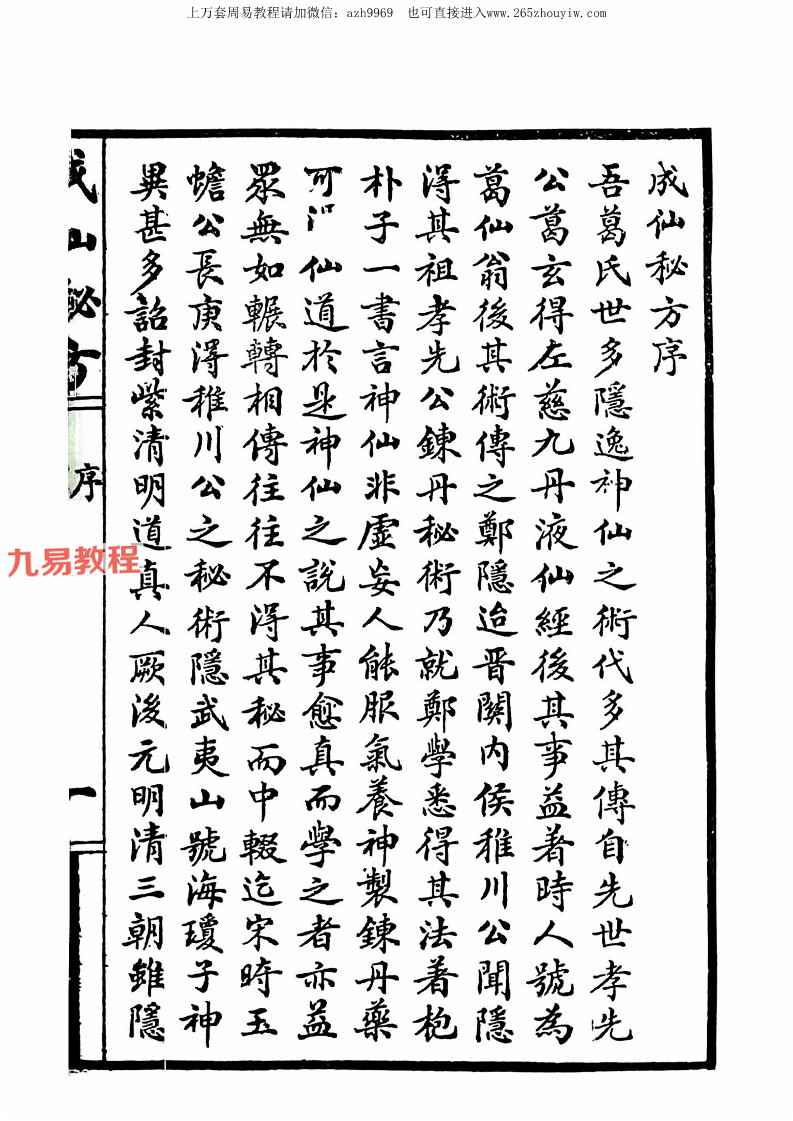 上万套周易教程请加微信：azh9969　也可直接进入www.265zhouyiw.com
成仙秘方序
吾葛氏世多隱逸神仙之術代多其傳自先世孝先
公葛玄得左慈九丹液仙經後其事益著時人號為
葛仙翁後其術傳之鄭隱迨晋關內侯稚川公聞隱
得其祖孝先公鍊丹秘術乃就鄭學悉得其法着枹
朴子一書言神仙非虛妄人能服氣養神製鍊丹藥
可 仙道於是神仙之說其事愈真而學之者亦益
眾無如輾轉相傳往往不得其秘而中輟迄宋時玉
蟾公長庚得稚川公之秘術隱武夷山號海瓊子神
異甚多詔封紫清明道真人厥後元明清三朝雖隱
成仙秘方
序
一
九易教程